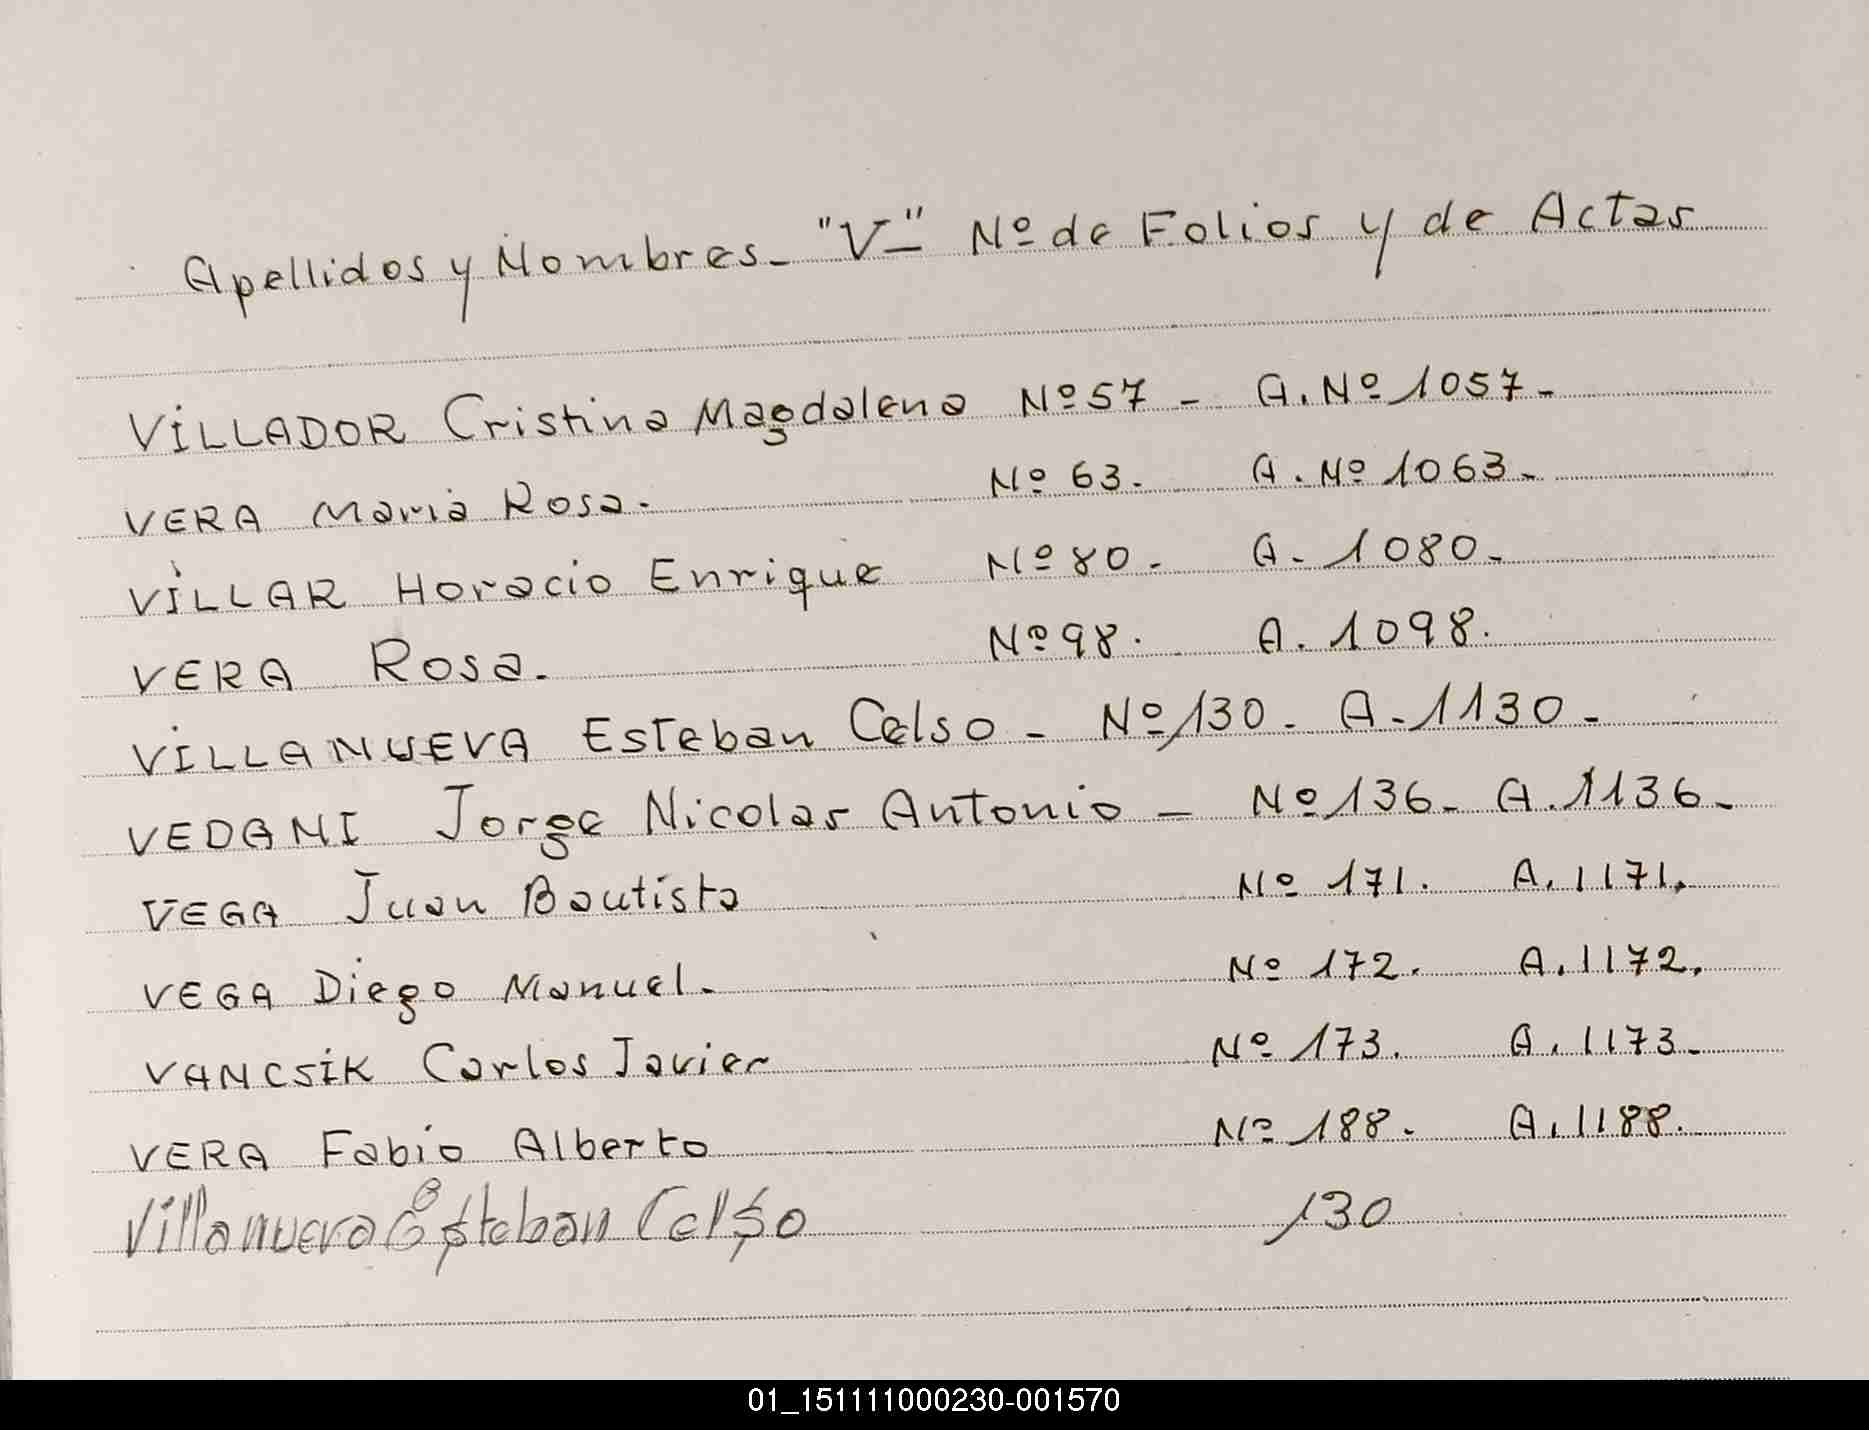 Apellidos y Nombres- "V-" Nº de Folios y de Actas
VILLADOR Cristina Magdalena Nº 57 - A. Nº 1057-
VERA Maria Rosa. Nº 63. A. Nº 1063-
VILLAR Horacio Enrique Nº 80- A- 1080-
VERA Rosa. Nº 98. A. 1098.
VILLANUEVA Esteban Celso - Nº 130- A-1130-
VEDANI Jorge Nicolas Antonio - Nº 136- A. 1136-
VEGA Juan Bautista Nº 171. A. 1171.
VEGA Diego Manuel. Nº 172. A. 1172.
VANCSIK Carlos Javier Nº 173. A. 1173-
VERA Fabio Alberto Nº 188. A. 1188.
Villanueva Esteban Celso 130
01_151111000230-001570